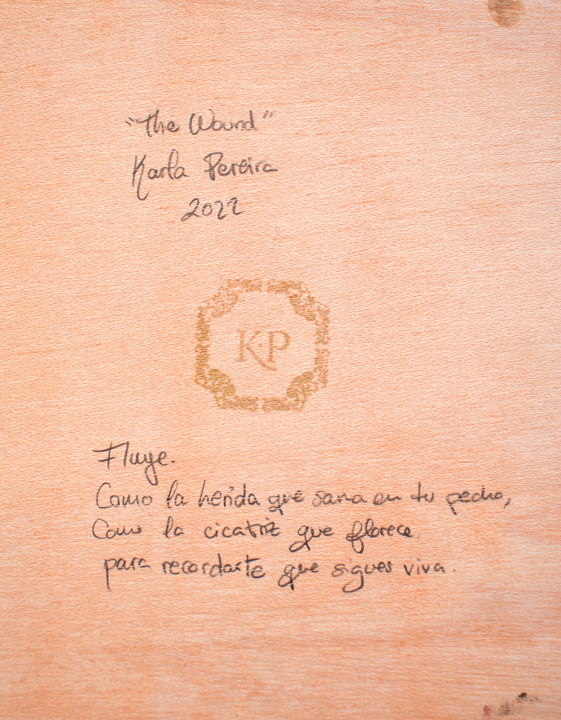 "The Wound"
Karla Pereira
2022
KP
Fluye.
Como la herida que sana en tu pecho,
Como la cicatriz que florece
para recordarte que sigues viva.